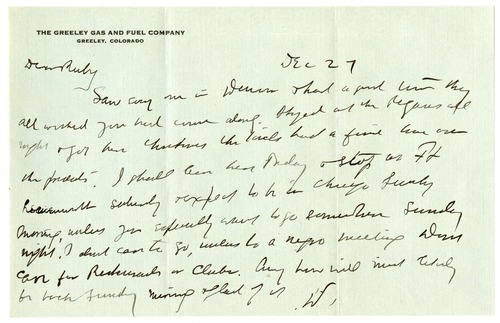 THE GREELEY GAS AND FUEL COMPANY
GREELEY, COLORADO
Dec 27
Dear Ruby
Saw in Denver & had a good time they
all wished you had come along. Stayed at the all
night & got here Christmas the kids had a fine time over
the presents. I shall leave here Friday & stop at Ft
Saturday & expect to be in Chicago Sunday
morning, unless you especially want to go somewhere Sunday
night, I dont care to go, unless to a negro meeting
care for Restaurants or Clubs. Any how will most likely
be back Sunday morning & glad of it. W,